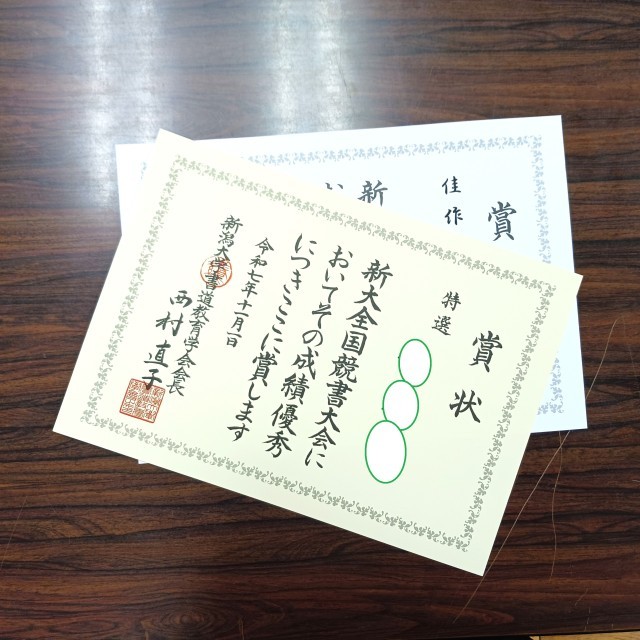 賞状
特選
新大全国競書大会に
おいてその成績優秀
につきここに賞します
令和七年十一月一日
新潟大学書道教育学会会長
西村直子
賞
佳作
新